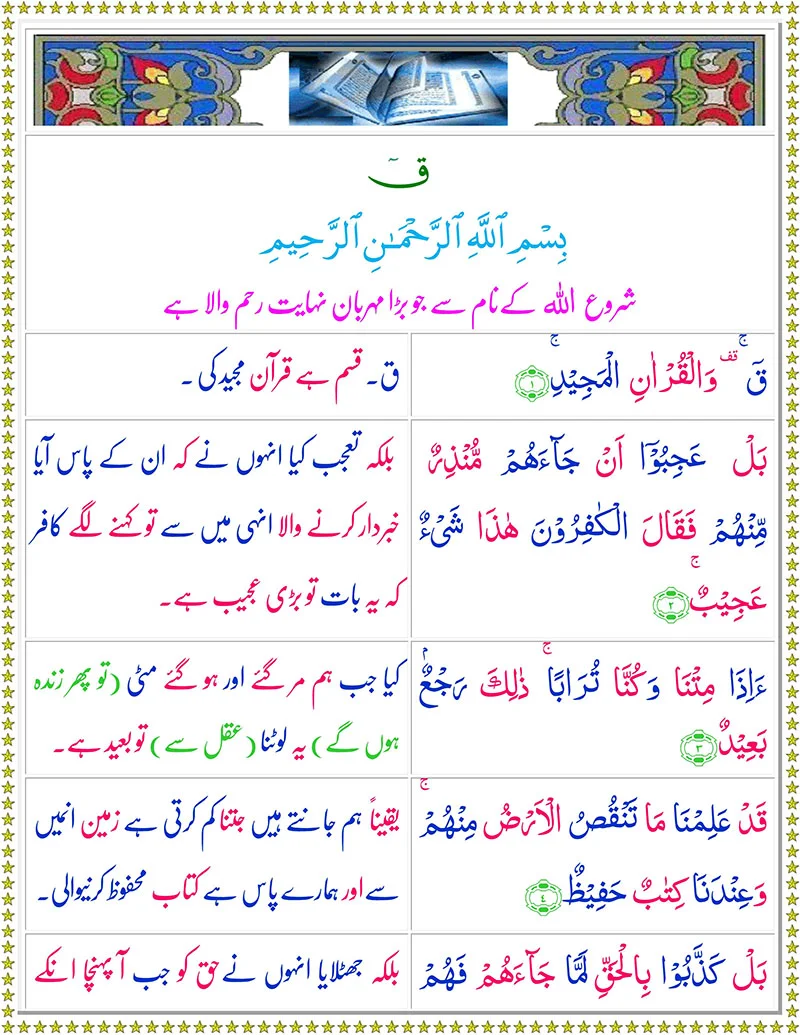 قٓ
بِسْمِ ٱللَّهِ ٱلرَّحْمَـٰنِ ٱلرَّحِيمِ
شروع اللہ کے نام سے جو بڑا مہربان نہایت رحم والا ہے
قٓ ۚ ۟ قف وَالْقُرْاٰنِ الْمَجِيْدِ ۚ ﴿١﴾
ق۔ قسم ہے قرآن مجید کی ۔
بَلْ عَجِبُوْۤا اَنْ جَآءَهُمْ مُّنْذِرٌ
مِّنْهُمْ فَقَالَ الْكٰفِرُوْنَ هٰذَا شَیْءٌ
عَجِيْبٌ ۚ ﴿٢﴾
بلکہ تعجب کیا انہوں نے کہ ان کے پاس آیا
خبردار کرنے والا انہی میں سے تو کہنے لگے کافر
کہ یہ بات تو بڑی عجیب ہے۔
ءَاِذَا مِتْنَا وَكُنَّا تُرَابًا ۚ ذٰلِكَ رَجْعٌۢ
بَعِيْدٌ ﴿٣﴾
کیا جب ہم مر گئے اور ہو گئے مٹی (تو پھر زندہ
ہوں گے) یہ لوٹنا (عقل سے) تو بعید ہے۔
قَدْ عَلِمْنَا مَا تَنْقُصُ الْاَرْضُ مِنْهُمْ ۚ
وَعِنْدَنَا كِتٰبٌ حَفِيْظٌ ﴿٤﴾
یقیناً ہم جانتے ہیں جتنا کم کرتی ہے زمین انمیں
سے اور ہمارے پاس ہے کتاب محفوظ کرنیوالی۔
بَلْ كَذَّبُوْا بِالْحَقِّ لَمَّا جَآءَهُمْ فَهُمْ
بلکہ جھٹلایا انہوں نے حق کو جب آ پہنچا انکے